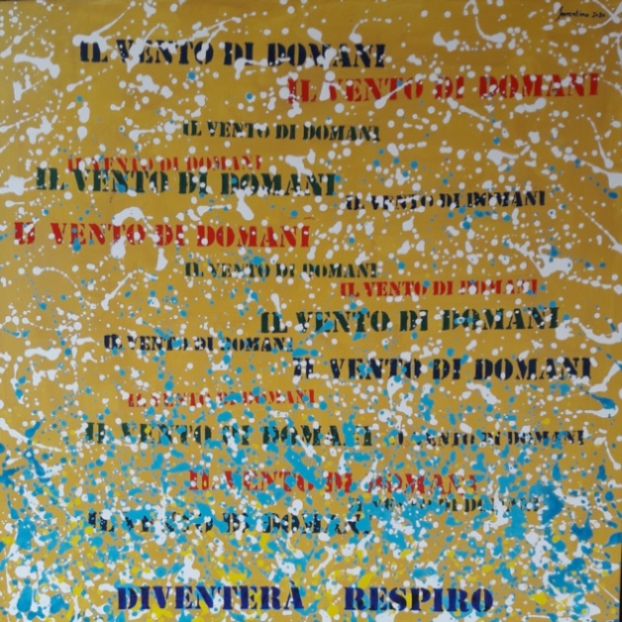 IL VENTO DI DOMANI
IL VENTO DI DOMANI
IL VENTO DI DOMANI
IL VENTO DI DOMANI
IL VENTO DI DOMANI
IL VENTO DI DOMANI
IL VENTO DI DOMANI
IL VENTO DI DOMANI
IL VENTO DI DOMANI
IL VENTO DI DOMANI
IL VENTO DI DOMANI
IL VENTO DI DOMANI
IL VENTO DI DOMANI
IL VENTO DI DOMANI
IL VENTO DI DOMANI
IL VENTO DI DOMANI
IL VENTO DI DOMANI
IL VENTO DI DOMANI
DIVENTERÀ RESPIRO